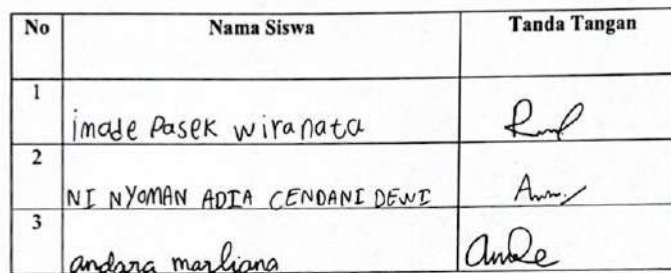 No Nama Siswa Tanda Tangan
1
imade Pasek wiranata
2
NI NYOMAN ADIA CENDANI DEWI
3
andara marliana